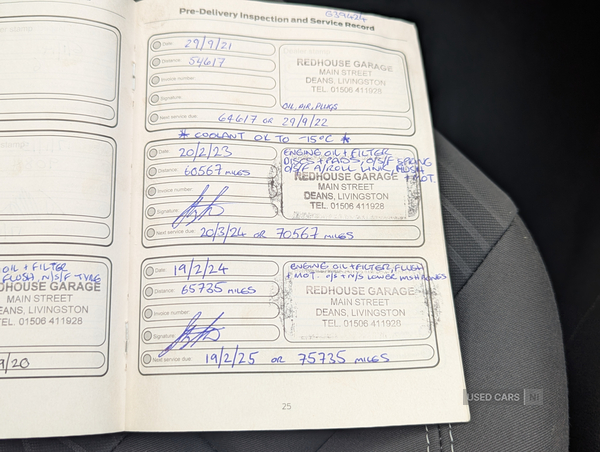 G39424
Pre-Delivery Inspection and Service Record
Date: 29/9/21
Distance: 54617
Invoice number:
Signature:
REDHOUSE GARAGE
MAIN STREET
DEANS, LIVINGSTON
TEL. 01506 411928
OIL, AIR, PLUGS
Next service due: 64617 OR 29/9/22
* COOLANT OK TO -15°C *
Date: 20/2/23
Distance: 60567 MILES
Invoice number:
Signature:
ENGINE OIL + FILTER
DISCS + PADS, O/S/F SPRING
O/S/F A/ROLL LINK, FLUSH
+ MOT.
REDHOUSE GARAGE
MAIN STREET
DEANS, LIVINGSTON
TEL. 01506 411928
Next service due: 20/3/24 OR 70567 MILES
Date: 19/2/24
Distance: 65735 MILES
Invoice number:
Signature:
ENGINE OIL + FILTER, FLUSH
+ MOT. O/S + N/S LOWER WISHBONES
REDHOUSE GARAGE
MAIN STREET
DEANS, LIVINGSTON
TEL. 01506 411928
Next service due: 19/2/25 OR 75735 MILES
25
OIL + FILTER
FLUSH, N/S/F TYRE
DHOUSE GARAGE
MAIN STREET
EANS, LIVINGSTON
EL. 01506 411928
9/20
USED CARS NI